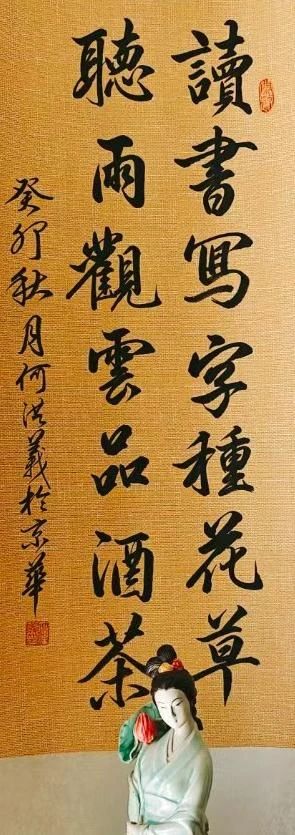 讀書寫字種花草
聽雨觀雲品酒茶
癸卯秋月何洪義於京華